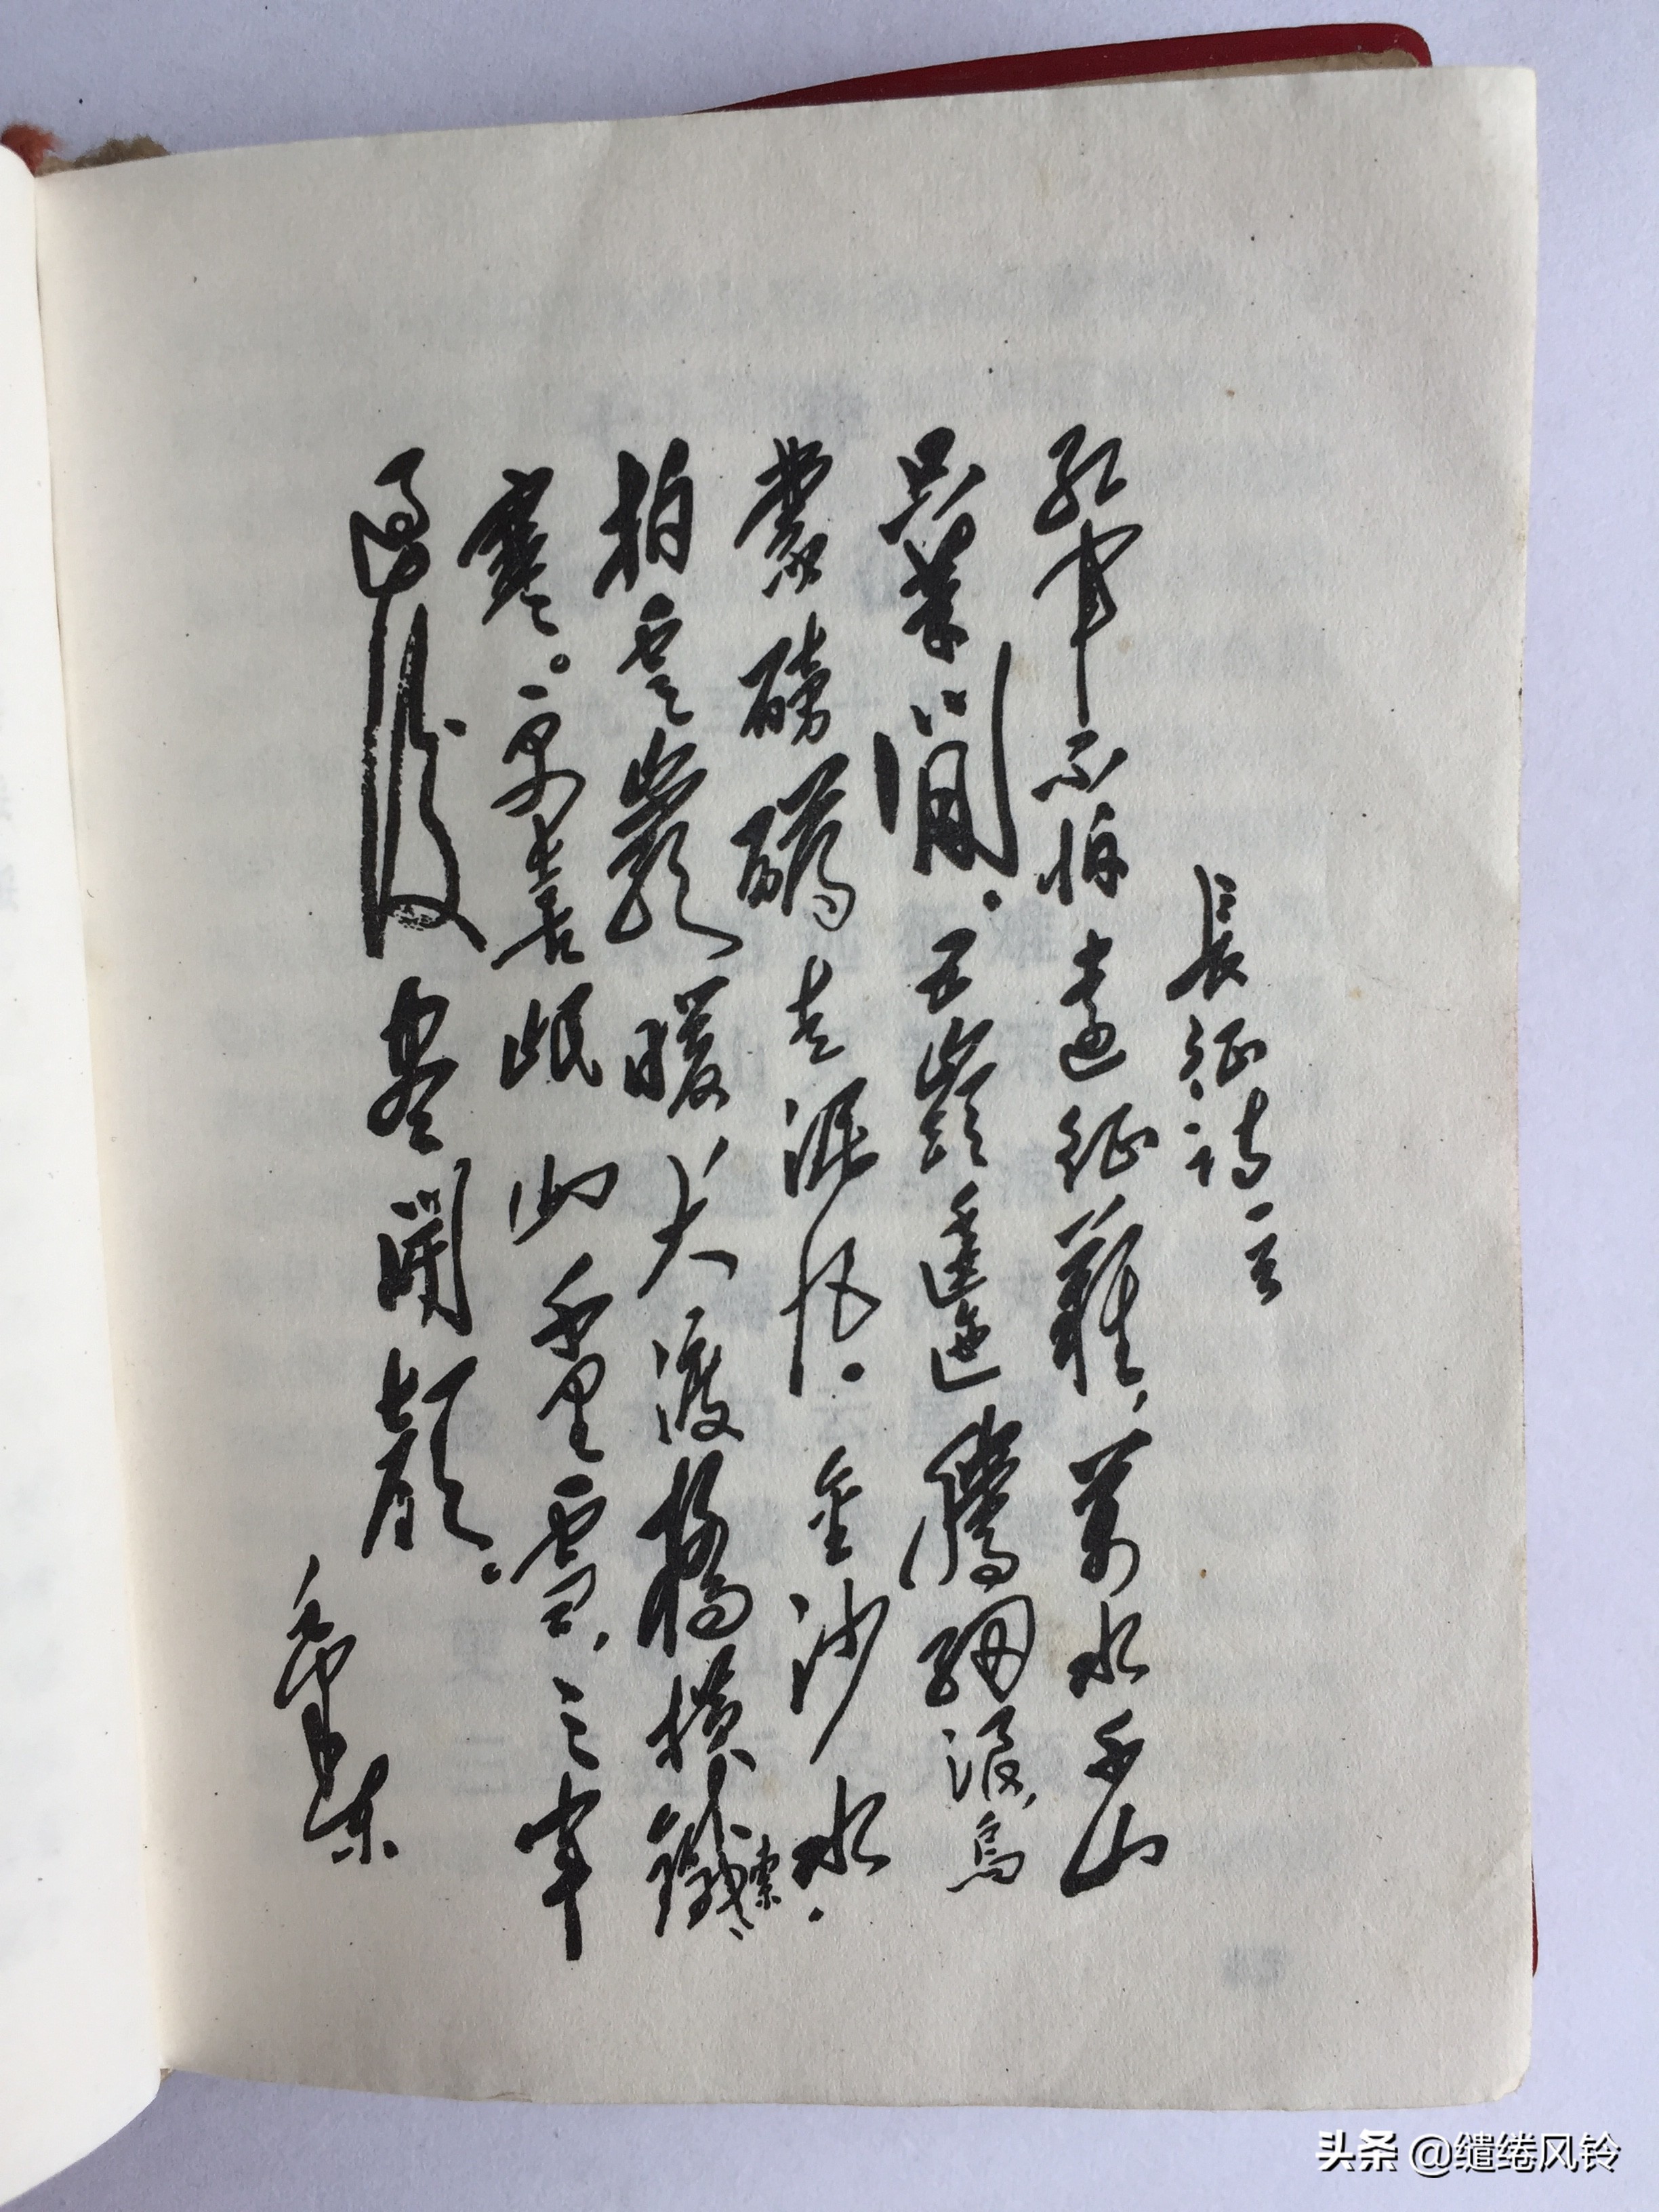 長征詩一首
紅軍不怕遠征難，萬水千山
只等閒。五嶺逶迤騰細浪，烏
蒙磅礴走泥丸。金沙水
拍雲巖暖，大渡橋橫鐵索
寒。更喜岷山千里雪，三軍
過後盡開顏。
毛澤東
头条 @缱绻风铃